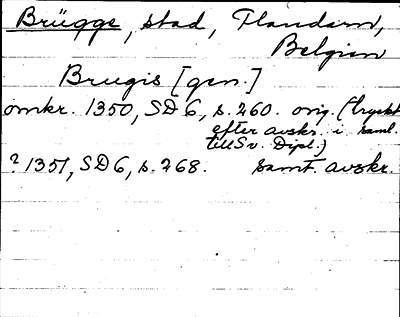 Brügge, stad, Flandern,
Belgien
Brugis [gen.]
omkr. 1350, SD 6, s. 260. orig. (tryckt
efter avskr. i saml.
till Sv. Dipl.)
? 1351, SD 6, s. 268. samt. avskr.